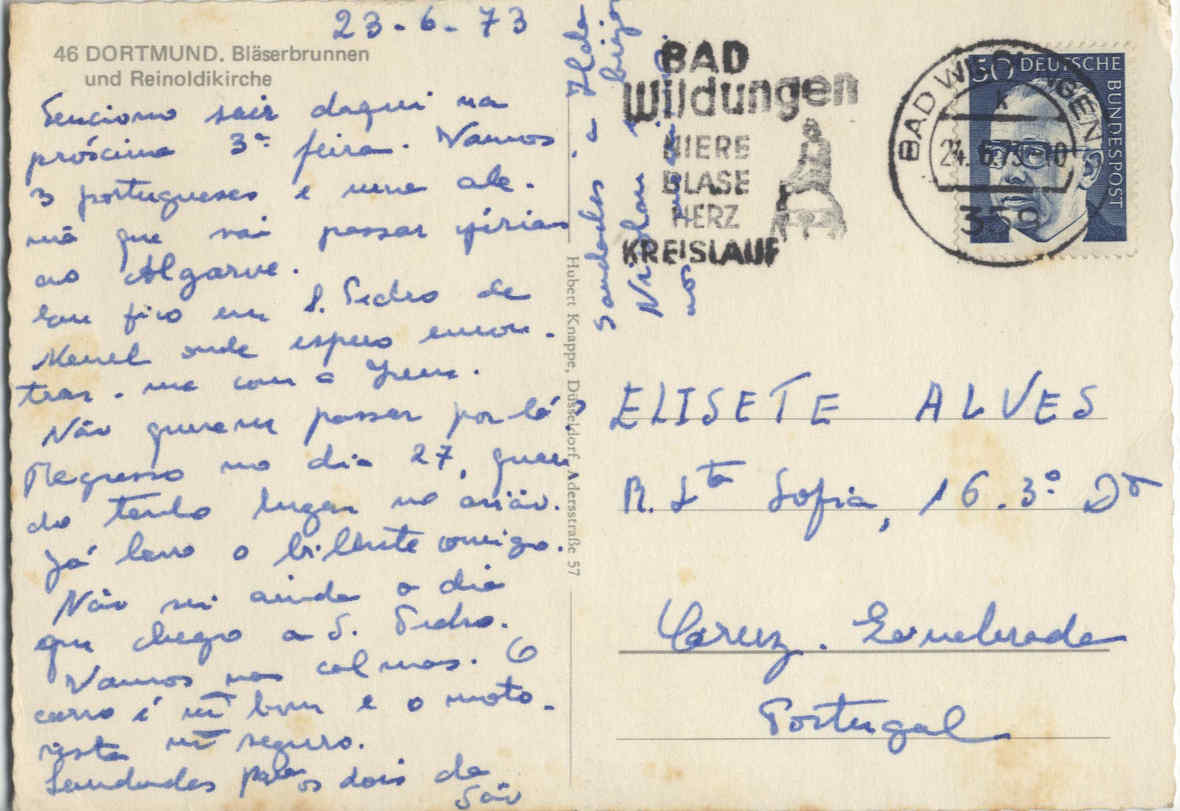 23-6-73
46 DORTMUND. Bläserbrunnen
und Reinoldikirche
Tenciono sair daqui na
próscima 3ª feira. Vamos
3 portugueses e uma ale-
mã que vai passar férias
ao Algarve.
Eu fico em S. Pedro de
Muel onde espero encon-
trar-me com a
Não querem passar por lá?
Regresso no dia 27, quan
do tenho lugar no avião.
Já levo o bilhete comigo.
Não sei ainda o dia
que chego a S. Pedro.
Vamos nas calmas. O
carro é mt bom e o moto-
rista mt seguro.
Saudades para os dois da
São
Saudades a Hilda
beijo
Hubert Knappe, Düsseldorf, Adersstraße 57
BAD
Wildungen
NIERE
BLASE
HERZ
KREISLAUF
BAD WILDUNGEN
k
24.6.73-10
359
50 DEUTSCHE
BUNDESPOST
ELISETE ALVES
R. Sta Sofia, 16.3º Dto
Cruz. Quebrada
Portugal